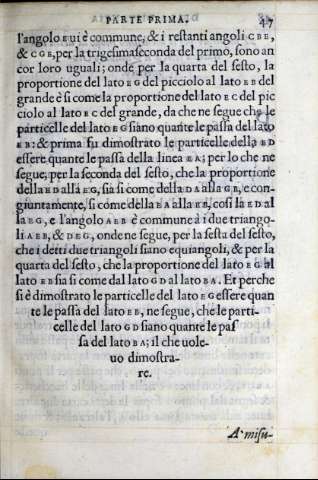 PARTE PRIMA. 47
l'angolo E ui è commune, & i restanti angoli C B E,
& C G E, per la trigesimaseconda del primo, sono an
cor loro uguali; onde per la quarta del sesto, la
proportione del lato E G del picciolo al lato E B del
grande è si come la proportione del lato E C del pic
ciolo al lato E C del grande, da che ne segue che le
particelle del lato E G siano quante le passa del lato
E B: & prima fu dimostrato le particelle della E D
essere quante le passa della linea E A; per lo che ne
segue; per la seconda del sesto, che la proportione
della E D alla E G, sia si come della D A alla G B, e con
giuntamente, si come della E A alla E B, cosi la E D al
la E G, e l'angolo A E B è commune à i due triango-
li A E B, & D E G, onde ne segue, per la sesta del sesto,
che i detti due triangoli siano equiangoli, & per la
quarta del sesto, che la proportione del lato E G al
lato E B sia si come dal lato G D al lato B A. Et perche
si è dimostrato le particelle del lato E G essere quan
te le passa del lato E B, ne segue, che le parti-
celle del lato G D siano quante le pas
sa del lato B A; il che uole-
uo dimostra-
re.
A misu-